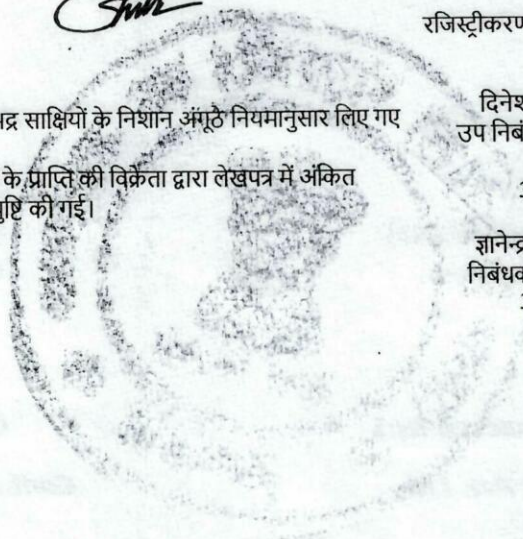 रजिस्ट्रीकरण
दिनेश
द्र साक्षियों के निशान अंगूठे नियमानुसार लिए गए
उप निबं
के प्राप्ति की विक्रेता द्वारा लेखपत्र में अंकित
ुष्टि की गई।
ज्ञानेन्द्र
निबंधक